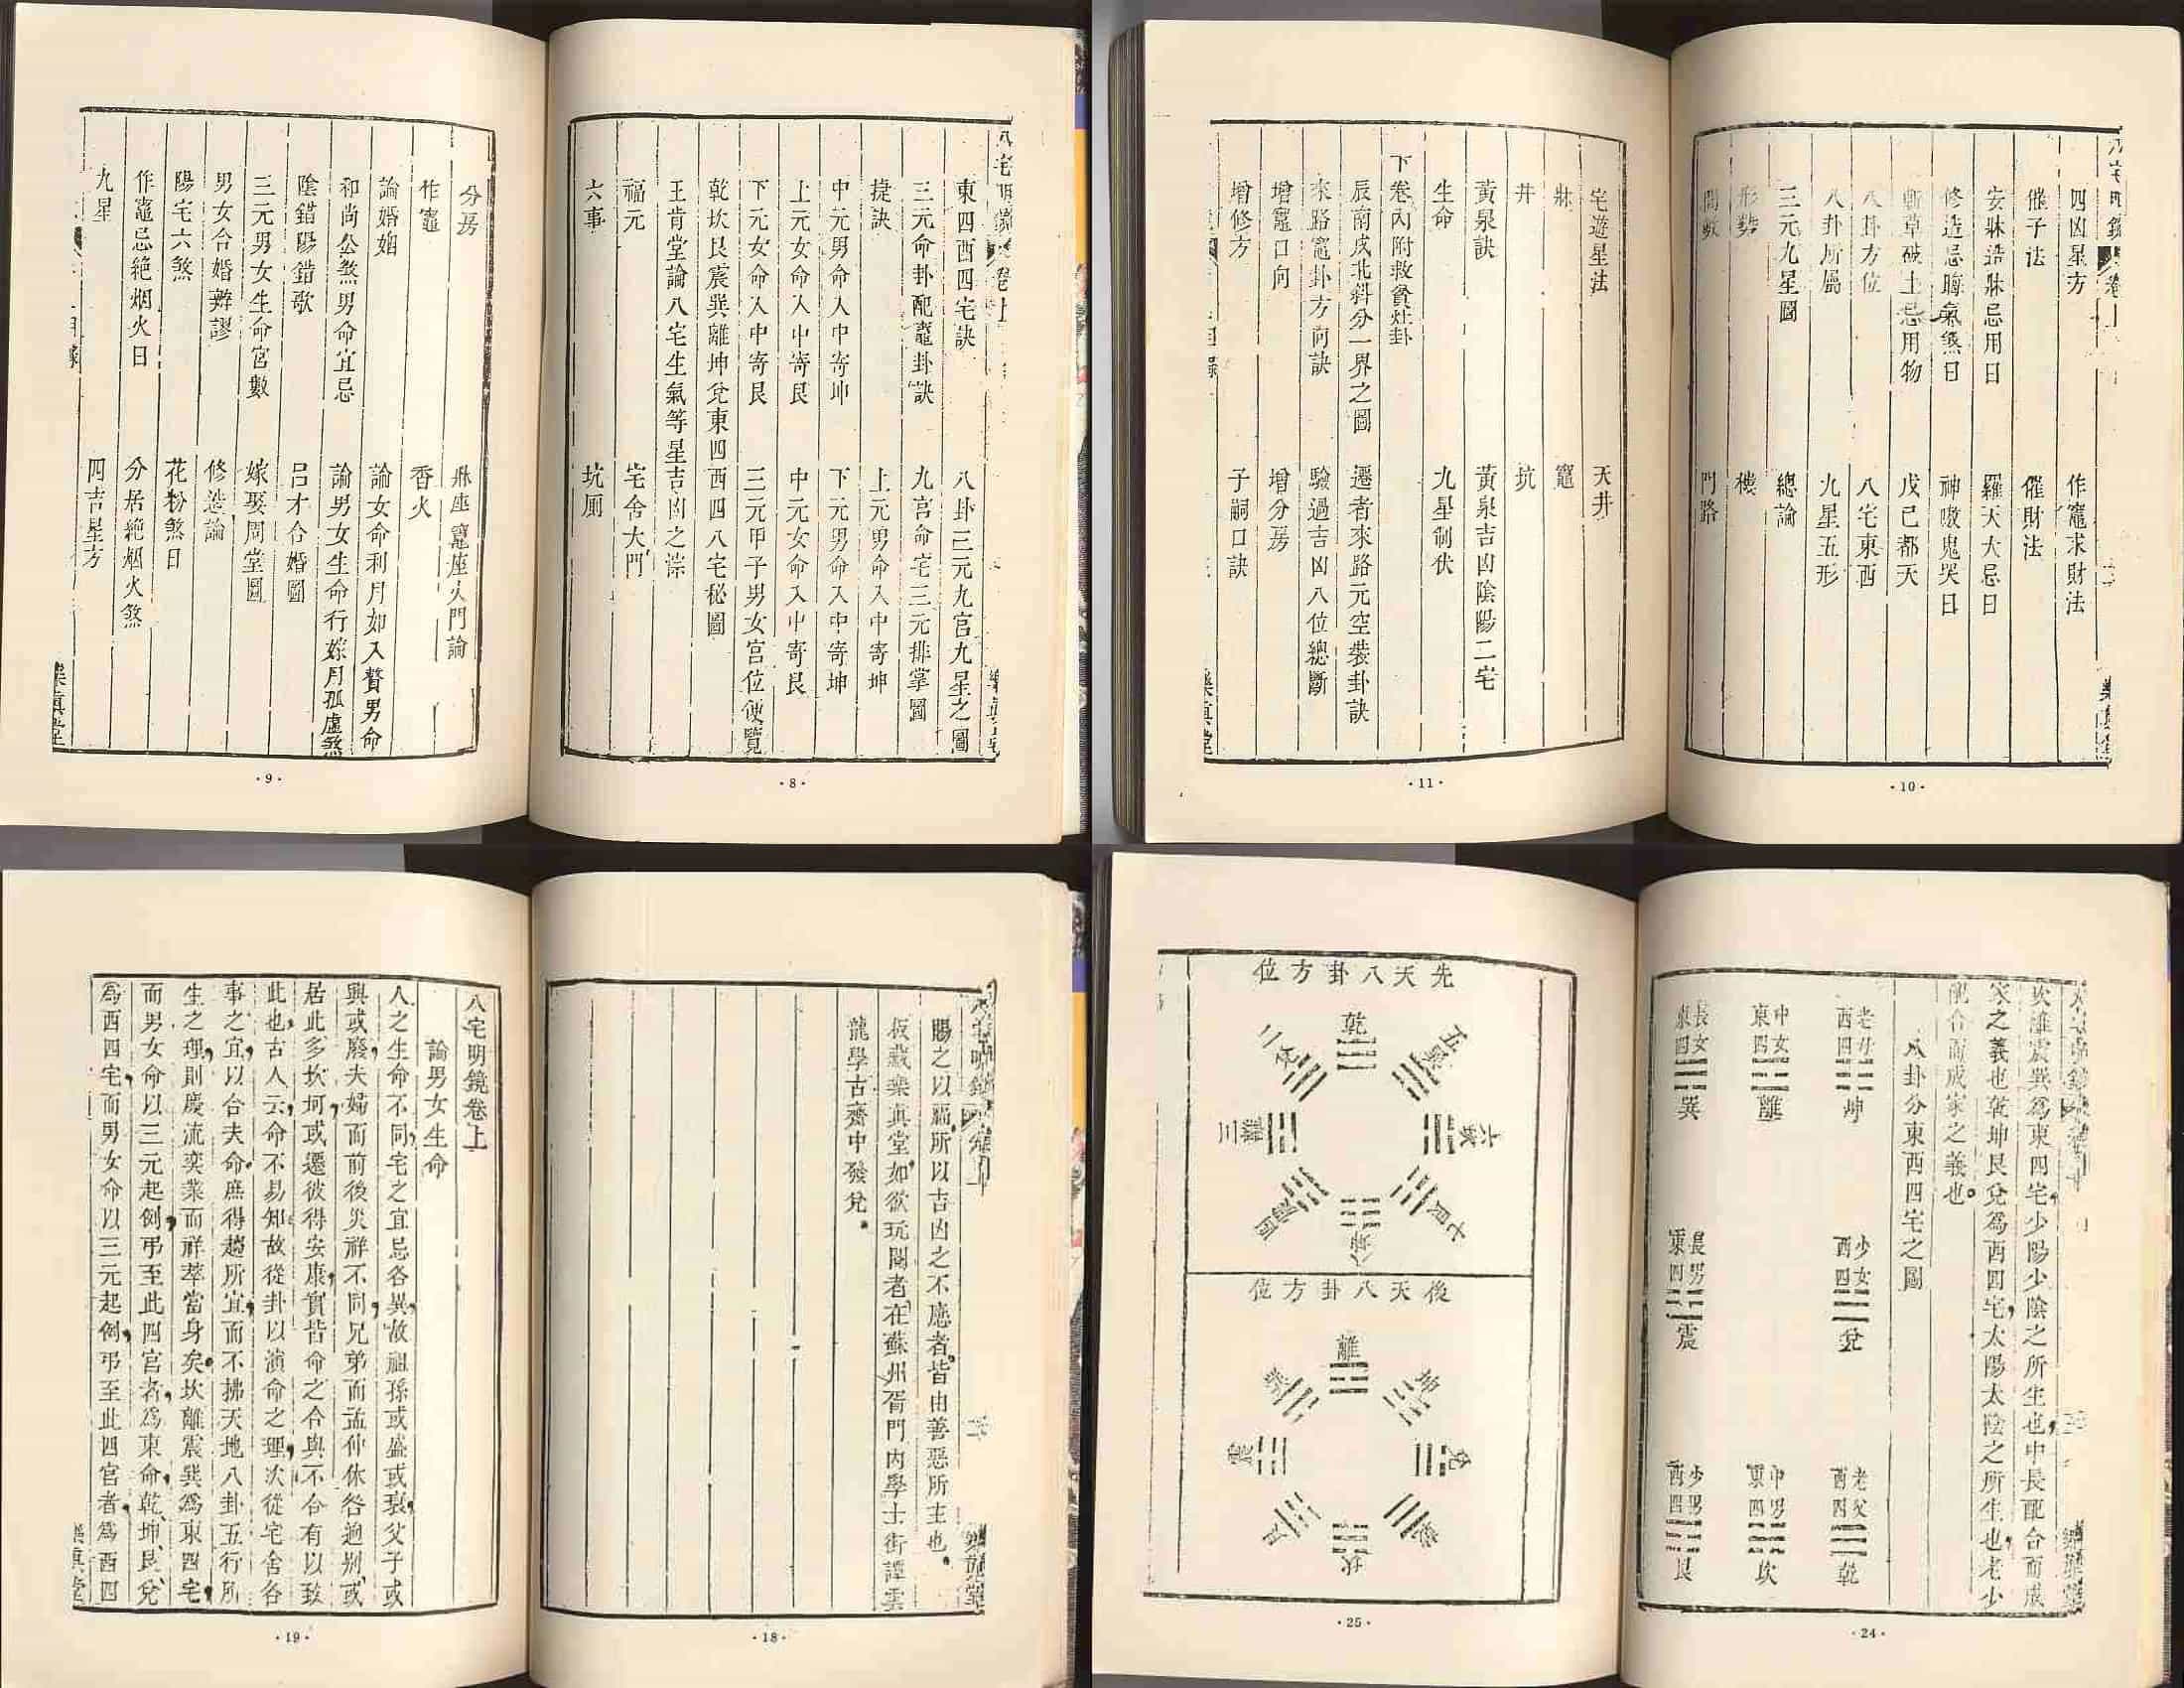 八宅明鏡 卷上
東四西四宅訣 八卦三元九宮九星之圖
三元命卦配竈卦訣 九宮命宅三元排掌圖
捷訣 上元男命入中寄坤
中元男命入中寄坤 下元男命入中寄坤
上元女命入中寄艮 中元女命入中寄艮
下元女命入中寄艮 三元甲子男女宮位便覽
乾坎艮震巽離坤兌東四西四八宅秘圖
王肯堂論八宅生氣等星吉凶之淙
福元 宅舍大門
六事 坑厠
樂真堂
·8·
分房 牀座竈座火門論
作竈 香火
論婚姻 論女命利月如入贅男命
和尚公煞男命宜忌 論男女生命行嫁月孤虛煞
陰錯陽錯歌 呂才合婚圖
三元男女生命宮數 嫁娶周堂圖
男女合婚辨謬 修造論
陽宅六煞 花粉煞日
作竈忌絶烟火日 分居絶烟火煞
九星 四吉星方
樂真堂
·9·
八宅明鏡 卷上
四凶星方 作竈求財法
催子法 催財法
安牀造牀忌用日 羅天大忌日
修造忌晦氣煞日 神嗷鬼哭日
斬草破土忌用物 戊己都天
八卦方位 八宅東西
八卦所屬 九星五形
三元九星圖 總論
形勢 樓
間數 門路
·10·
宅遊星法 天井
牀 竈
井 坑
黃泉訣 黃泉吉凶陰陽二宅
生命 九星制伏
下卷內附救貧灶卦
辰南戌北斜分一界之圖 遷者來路元空裝卦訣
來路竈卦方向訣 驗過吉凶八位總斷
增竈口向 增分房
增修方 子嗣口訣
樂真堂
·11·
賜之以福，所以吉凶之不應者，皆由善惡所主也。
板藏樂真堂，如欲玩閱者，在蘇州胥門內學士街譚雲
龍學古齋中發兌。
樂真堂
·18·
八宅明鏡卷上
論男女生命
人之生命不同，宅之宜忌各異，故祖孫或盛或衰，父子或
興或廢，夫婦而前後災祥不同，兄弟而孟仲休咎逈别，或
居此多坎坷，或遷彼得安康，實皆命之合與不合有以致
此也，古人云，命不易知，故從卦以演命之理，次從宅舍各
事之宜，以合夫命，庶得趨所宜，而不拂天地八卦五行所
生之理，則慶流奕葉，而祥萃當身矣。坎離震巽爲東四宅，
而男女命以三元起例，弔至此四宮者，爲東命，乾、坤、艮、兌
爲西四宅，而男女命以三元起例，弔至此四宮者，爲西四
樂真堂
·19·
坎離震巽爲東四宅，少陽少陰之所生也，中長配合而成
家之義也，乾坤艮兌爲西四宅，太陽太陰之所生也，老少
配合而成家之義也。
八卦分東西四宅之圖
老母西四 坤
少女西四 兌
老父西四 乾
中女東四 離
中男東四 坎
長女東四 巽
長男東四 震
少男西四 艮
·24·
先天八卦方位
乾一
兌二
離三
震四
巽五
坎六
艮七
坤八
後天八卦方位
離
坤
兌
乾
坎
艮
震
巽
·25·